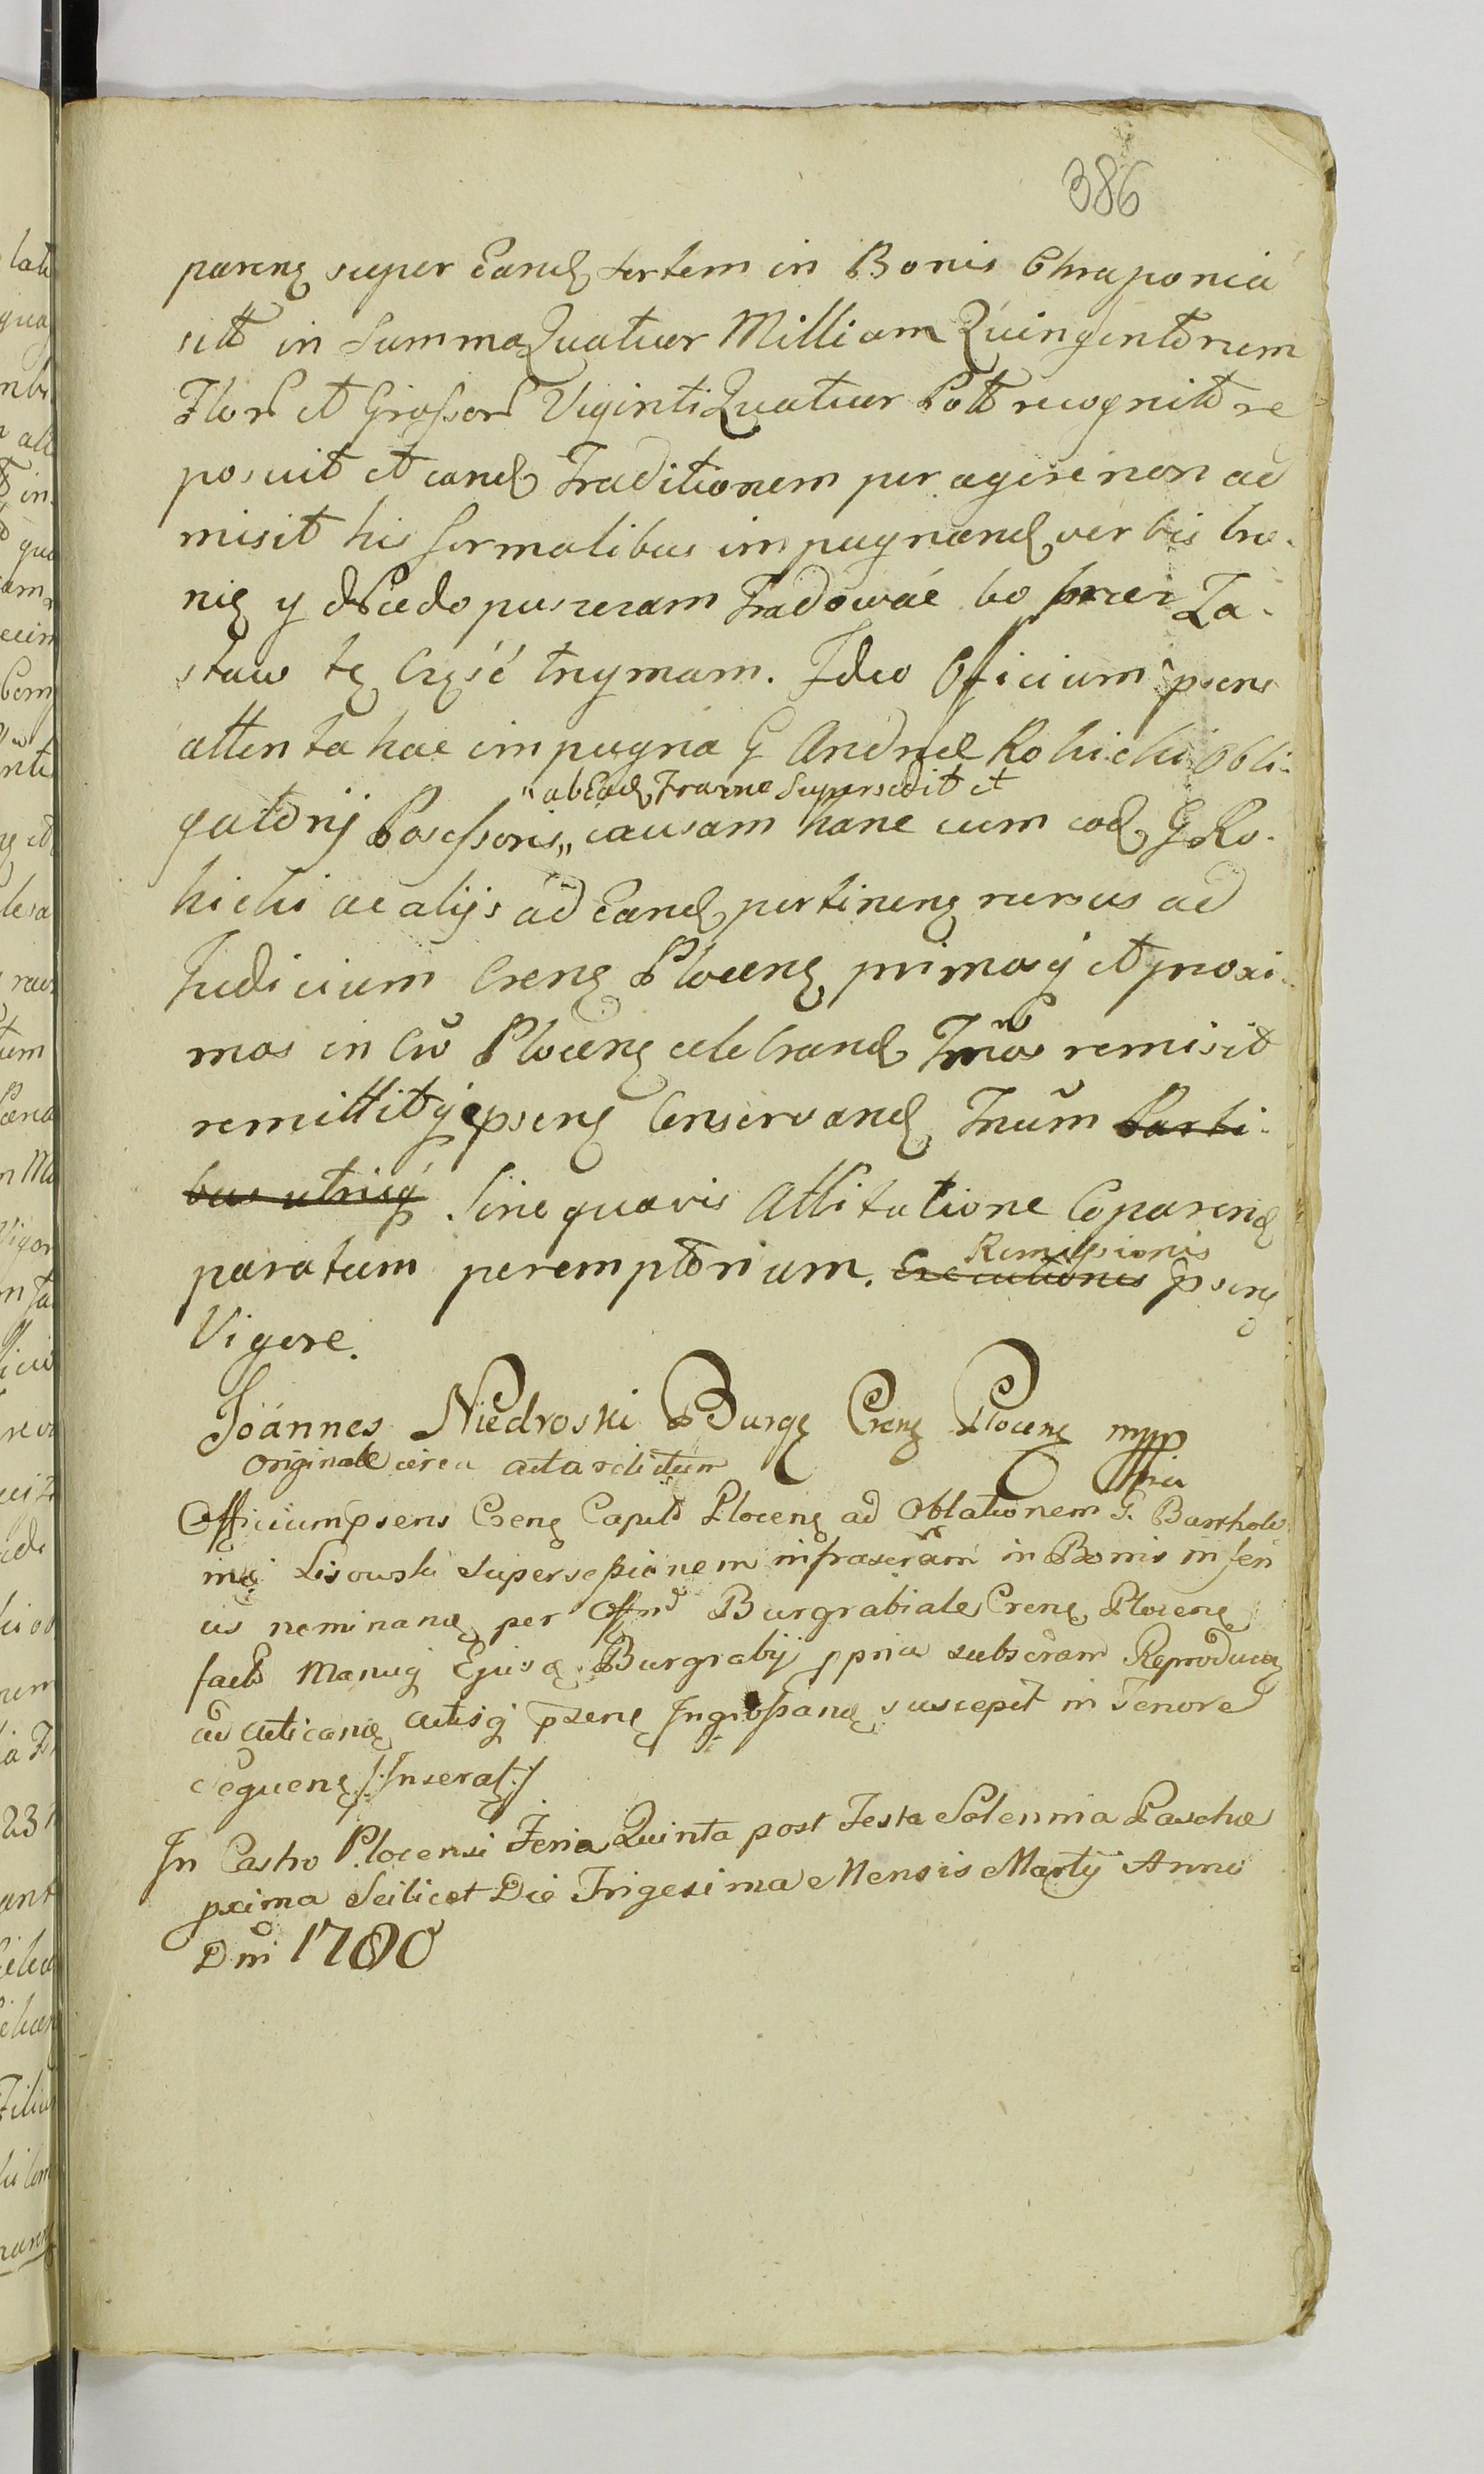 386
pareng super eand sortem in Bonis Chraponia
sitt in Summa Quatuor Millium Quingentorum
Flor et Grossor Viginti Quatuor Poll recognitt re
posuit et eand Traditionem per agere non ad
misit his formalibus impugnand verbis bro-
nię y niedopuszczam Tradować bo przez Za-
staw tę Część trzymam. Ideo Officium psens
attenta hac impugna G Andreæ Rokicki Obli-
"ab Ead Traone Supersedit et
gatorij Possessoris,, causam hanc cum eod G Ro-
kicki ac alijs ad Eand pertineng rursus ad
Judicium Creng Ploceng primosq et proxi-
mos in Crõ Ploceng celebrand Tmõs remisit
remittitq pseng Conservand Tmum Parti-
bus utrisq Sine quavis Attitatione Coparend
paratum peremptorium. Executionis pseng
Remissionis
Vigore.
Joannes Niedroski Burg Creng Ploceng mpp
Originale circa acta relictum
Officium psens Creng Capitt Ploceng ad Oblationem G. Bartholo
mæi Lisowski Supersessionem infrascram in Bonis infer
us nominand per Offm Burgrabiale Creng Ploceng
fact Manuq Ejusd Burgrabij ppria subscram Reproducg
ad Acticand actisq pseng Ingrossand suscepit in Tenore
Sequeng /:Inserat:/
In Castro Plocensi Feria Quinta post Festa Solennia Paschæ
pxima Scilicet Die Trigesima Mensis Martij Anno
Dni 1780